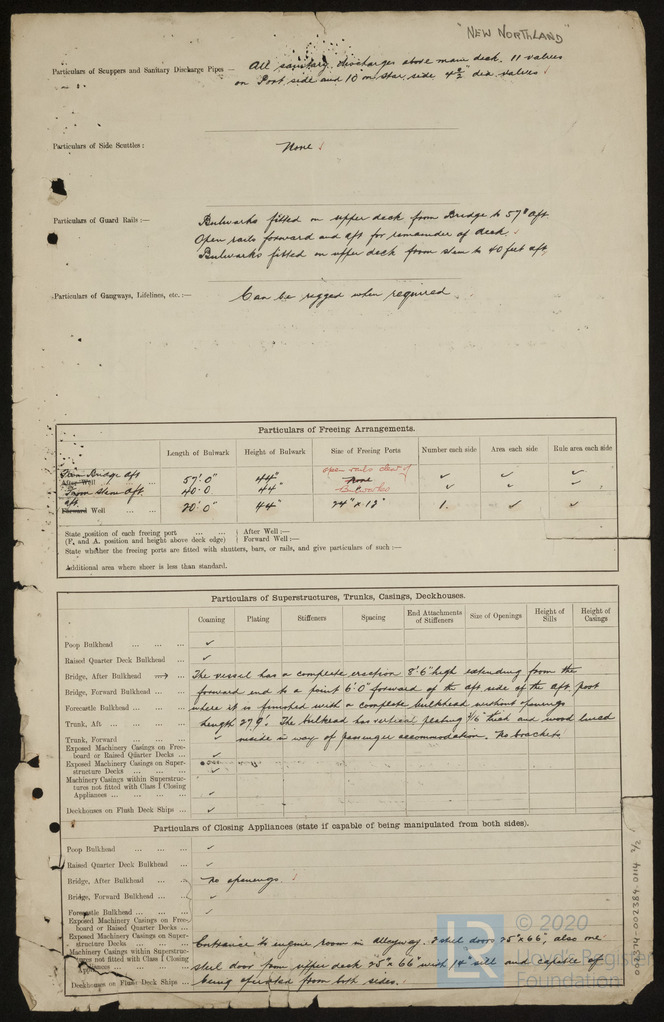 "NEW NORTHLAND"
Particulars of Scuppers and Sanitary Discharge Pipes — All sanitary discharges above main deck. 11 valves
on Port side and 10 on Star. side 4½" dia. valves
Particulars of Side Scuttles: None
Particulars of Guard Rails:— Bulwarks fitted on upper deck from Bridge to 57' aft
Open rails forward and aft for remainder of deck.
Bulwarks fitted on upper deck from stem to 40 feet aft
Particulars of Gangways, Lifelines, etc.:— Can be rigged when required
Particulars of Freeing Arrangements.
Length of Bulwark Height of Bulwark Size of Freeing Ports Number each side Area each side Rule area each side
open rails clear of
From Bridge aft
After Well 57'. 0" 44" None ✓ ✓ ✓
From stem aft. 40-0 44" bulwarks ✓ ✓ ✓
aft.
Forward Well 20'. 0" 44" 24" x 12" 1. ✓ ✓
State position of each freeing port After Well:—
(F. and A. position and height above deck edge) Forward Well:—
State whether the freeing ports are fitted with shutters, bars, or rails, and give particulars of such:—
Additional area where sheer is less than standard.
Particulars of Superstructures, Trunks, Casings, Deckhouses.
Coaming Plating Stiffeners Spacing End Attachments of Stiffeners Size of Openings Height of Sills Height of Casings
Poop Bulkhead ✓
Raised Quarter Deck Bulkhead ✓
Bridge, After Bulkhead The vessel has a complete erection 8'-6" high extending from the
Bridge, Forward Bulkhead forward end to a point 6'-0" forward of the aft side of the aft. post
Forecastle Bulkhead where it is finished with a complete bulkhead without openings
Trunk, Aft Length 279'. The bulkhead has vertical plating thick and wood lined
Trunk, Forward ✓ inside in way of passenger accommodation. No brackets
Exposed Machinery Casings on Free-
board or Raised Quarter Decks ✓
Exposed Machinery Casings on Super-
structure Decks ✓
Machinery Casings within Superstruc-
tures not fitted with Class I Closing
Appliances ✓
Deckhouses on Flush Deck Ships ✓
Particulars of Closing Appliances (state if capable of being manipulated from both sides).
Poop Bulkhead ✓
Raised Quarter Deck Bulkhead ✓
Bridge, After Bulkhead No openings
Bridge, Forward Bulkhead ✓
Forecastle Bulkhead ✓
Exposed Machinery Casings on Free-
board or Raised Quarter Decks
Exposed Machinery Casings on Super-
structure Decks Entrance to engine room in alleyway. 2 steel doors 25" x 66", also one
Machinery Casings within Superstruc-
tures not fitted with Class I Closing
Appliances steel door from upper deck 25" x 66" with 14" sill and capable of
Deckhouses on Flush Deck Ships being operated from both sides.
002374-002384-0114 2/2
LR
© 2020
Lloyd's Register
Foundation